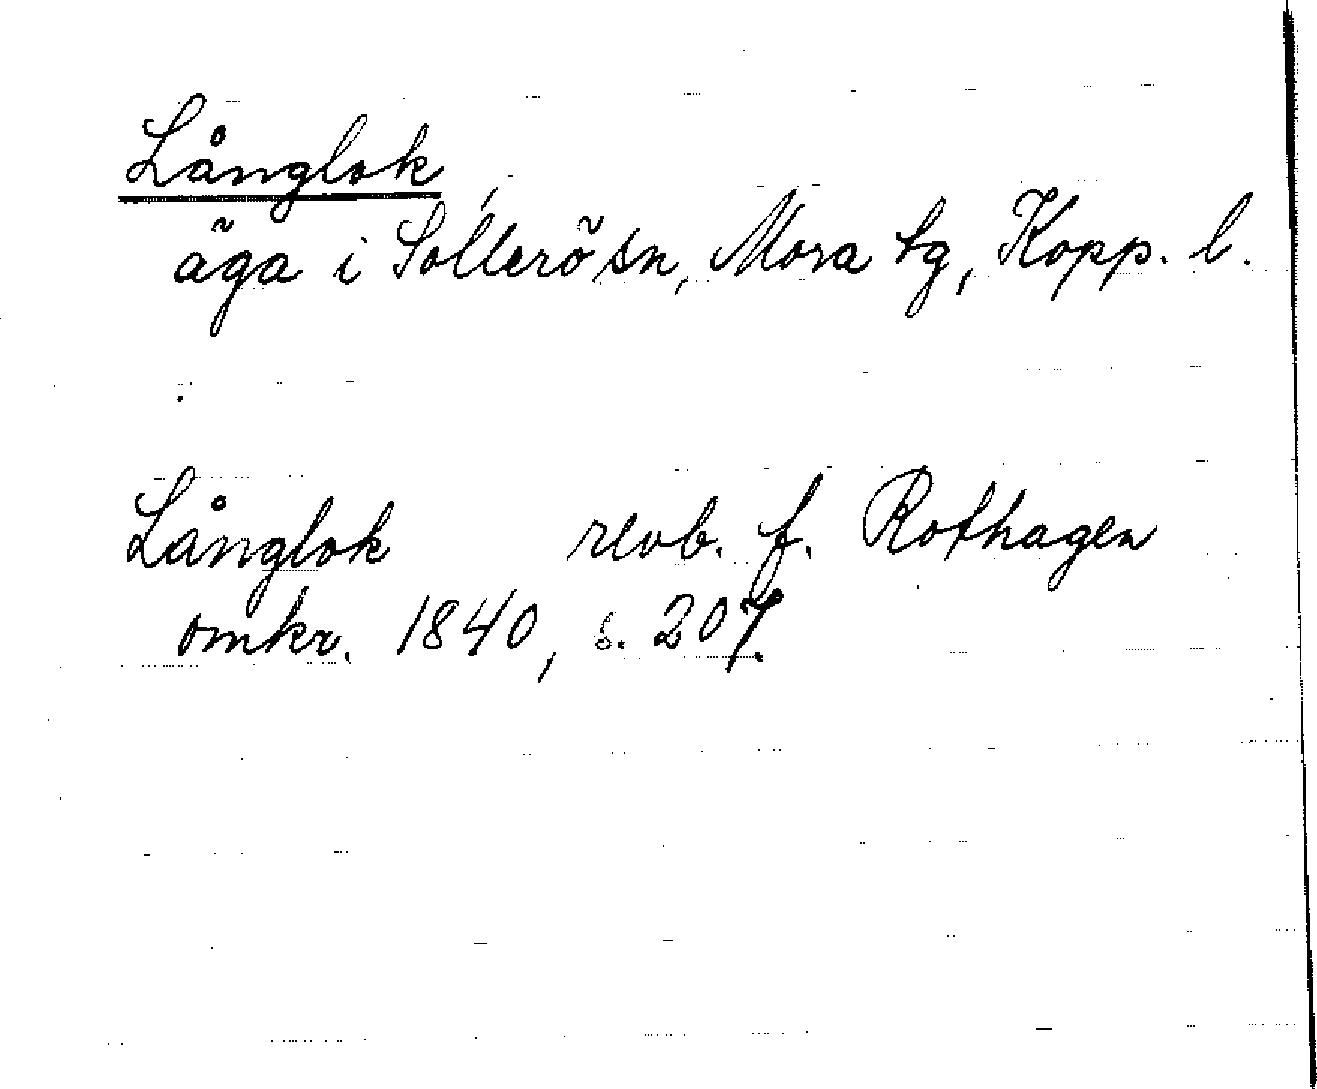 Långlok
äga i Sollerö sn, Mora tg, Kopp. l.
Långlok revb. f. Rothagen
omkr. 1840, s. 207.